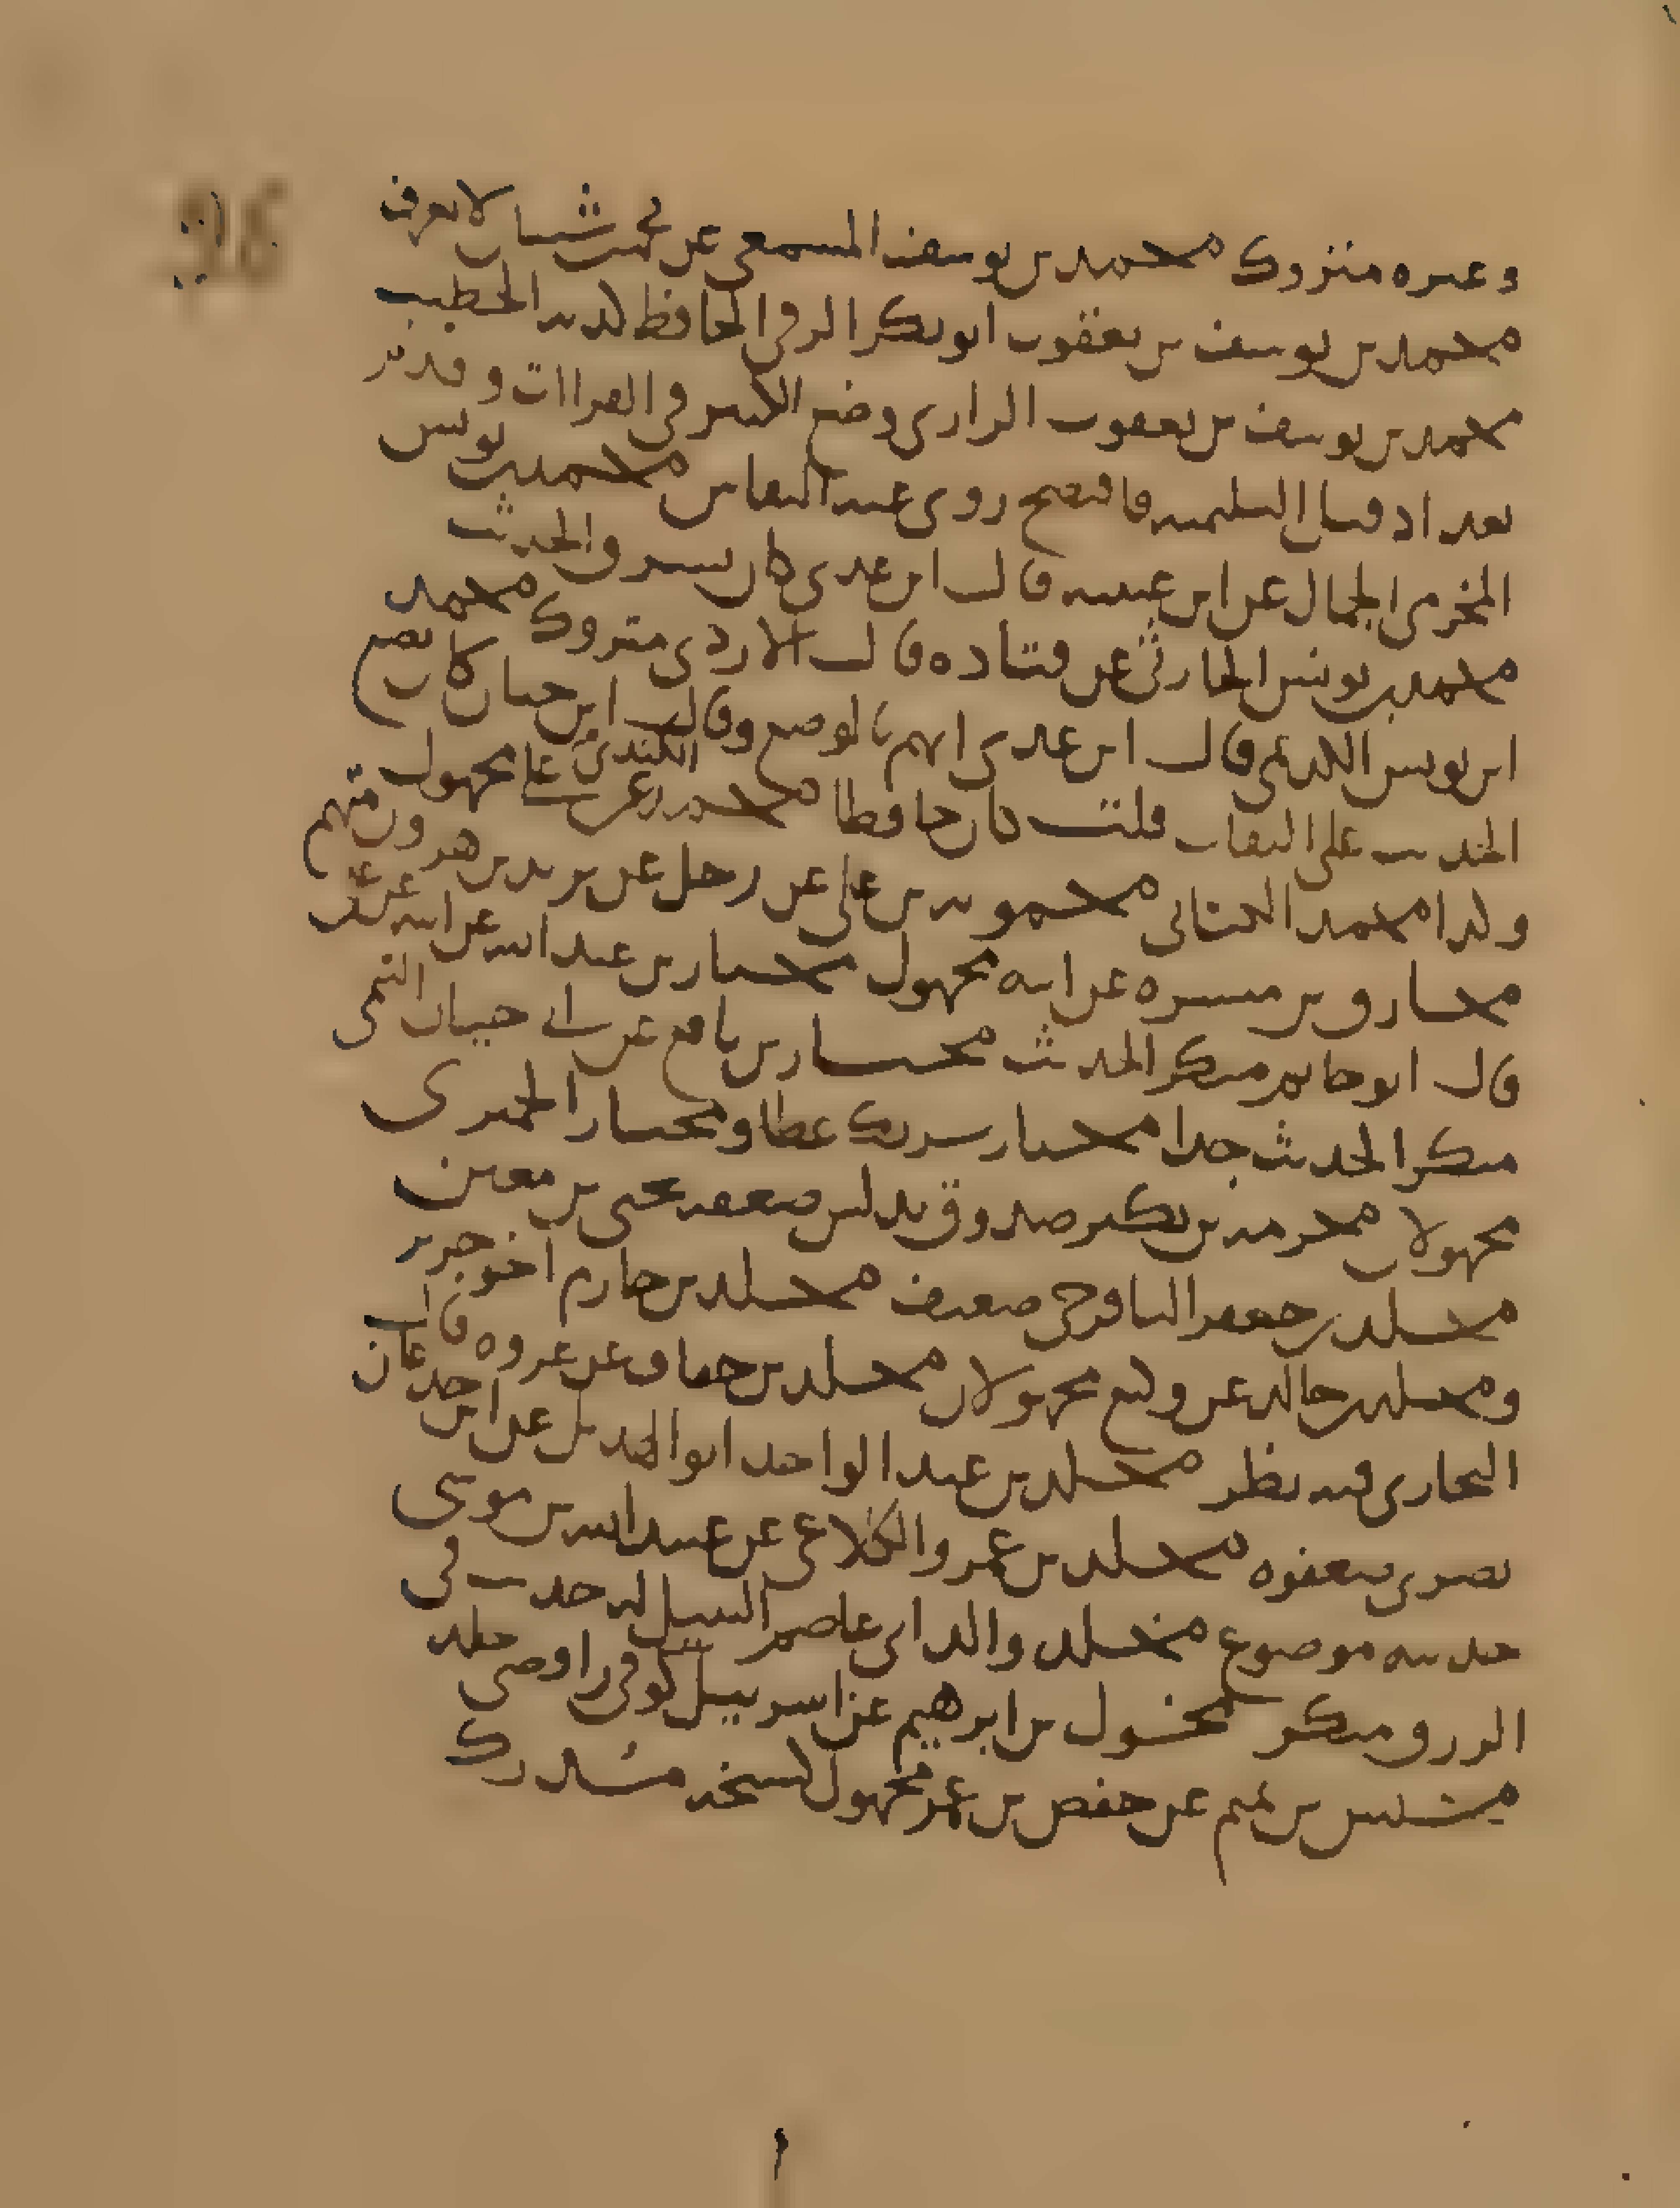 وغيره متروك محمد بن يوسف المسمعي عن محمد بن شيبان لا يعرف
محمد بن يوسف بن يعقوب ابو بكر الرقي الحافظ كذبه الخطيب
محمد بن يوسف بن يعقوب الرازي وضع الكثير في القراات وقدم
بغداد قبل الثلثمية فافتضح روى عنه النقاش محمد بن يونس
المخرمي الجمال عن ابن عيينه قال ابن عدي كان يسرق الحديث
محمد بن يونس الحارثي عن قتاده قال الازدي متروك محمد
ابن يونس الكديمي قال ابن عدي اتهم بالوضع وقال ابن حبان كان يضع
الحديث على الثقات قلت كان حافظا محمد الكندي عن علي مجهول
وكذا محمد الكناني محمويه بن علي عن رجل عن يزيد بن هرون متهم
مخارق بن ميسره عن ابيه مجهول مختار بن عبد الله عن ابيه عن علي
قال ابو حاتم منكر الحديث مختار بن نافع عن ابي حيان التيمي
منكر الحديث جدا مختار شريك عطا ومختار الحميري
مجهولان مخرمه بن بكير صدوق يدلس ضعفه يحيى بن معين
مخلد بن جعفر الباقرحي ضعيف مخلد بن حازم اخو جرير
ومخلد بن خالد عن وكيع مجهولان مخلد بن خفاف عن عروه قال
البخاري فيه نظر مخلد بن عبد الواحد ابو الهذيل عن ابن جدعان
بصري ضعفوه مخلد بن عمرو الكلاعي عن عبيد الله بن موسى
حديثه موضوع مخلد والد ابي عاصم النبيل له حديث في
الرزق منكر مخول بن ابرهيم عن اسرييل كوفي رافضي جلد
مخيس بن تميم عن حفص بن عمر مجهول لنسخه مدرك